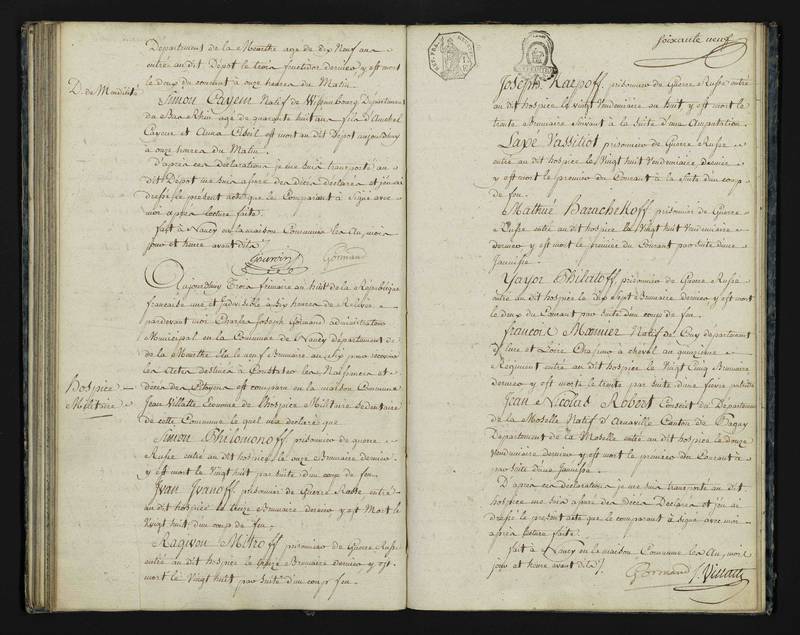 Département de la Meurthe age de dix Neuf ans
entré au dit Dépot le trois fructidor dernier y est mort
le deux du courant à onze heures du Matin
D. de Mendicité
Simon Cayeur Natif de Wissembourg Département
du Bas Rhin age de quarante huit ans fils d'
Cayeur et Anna est mort au dit Dépot aujourd'huy
à onze heures du Matin.
D'après ces Déclarations je me suis transporté au
dit Dépôt me suis assuré des dites déclarés et j'en ai
dressé le présent acte que le Comparant à signé avec
moi après lecture faite.
fait à Nancy en la maison Commune les An, mois
jour et heure avant dits
Gormand
Aujourd'huy trois frimaire an huit de la République
française une et Indivisible à Six heures de Relevée
pardevant moi Charles Joseph Gormand administrateur
Municipal en la Commune de Nancy département de
de la Meurthe élu le neuf Brumaire an six pour recevoir
les Actes destinés à Constater les Naissances et
décès des Citoyens est comparu en la maison Commune
Hospice
Militaire
Jean Villatte Econome de l'hospice Militaire sedentaire
de cette Commune le quel m'a déclaré que
Simon Philomonoff prisonnier de guerre
Russe entré au dit hospice le onze Brumaire dernier
y est mort le Vingt huit par suite d'un coup de feu
Ivan Ivanoff prisonnier de Guerre Russe entré
au dit hospice le Onze Brumaire dernier y est Mort le
Vingt huit d'un coup de feu
Ragivon Mitroff prisonnier de Guerre Russe
entré au dit hospice le Brumaire dernier y est
mort le Vingt huit par suite d'un coup feu.
soixante neuf
Joseph Karpoff prisonnier de Guerre Russe entré
au dit hospice le vingt Vendemiaire an huit y est mort le
trente Brumaire suivant à la suite d'une Amputation
Savé Vassiliot prisonnier de Guerre Russe
entré au dit hospice le Vingt huit Vendemiaire dernier
y est mort le premier du Courant à la suite d'un coup
de feu.
Mathué Barachekoff prisonnier de Guerre
Russe entré au dit hospice le Vingt huit Vendemiaire
dernier y est mort le premier du Courant par suite d'une
Jaunisse.
Yayor Philatoff prisonnier de Guerre Russe
entré au dit hospice le dix Sept Brumaire dernier y est mort
le deux du Courant par suite d'un coup de feu.
françois Mounier Natif de département
et Loire Chasseur à cheval au quinzième
Régiment entré au dit hospice le Vingt Cinq Brumaire
dernier y est mort le trente par suite d'une fievre putride
Jean Nicolas Robert Conscrit du Département
de la Moselle Natif d'Arnaville Canton de Pagny
Département de la Moselle entré au dit hospice le douze
Vendemiaire dernier y est mort le premier du Courant
par suite d'une Jaunisse.
D'après ces déclarations je me suis transporté au dit
hospice me suis assuré des Décès Déclarés et j'en ai
dressé le présent acte que le comparant à signé avec moi
après lecture faite.
fait à Nancy en la maison Commune les An, mois
jour et heure avant dits
Gormand J. Villatte